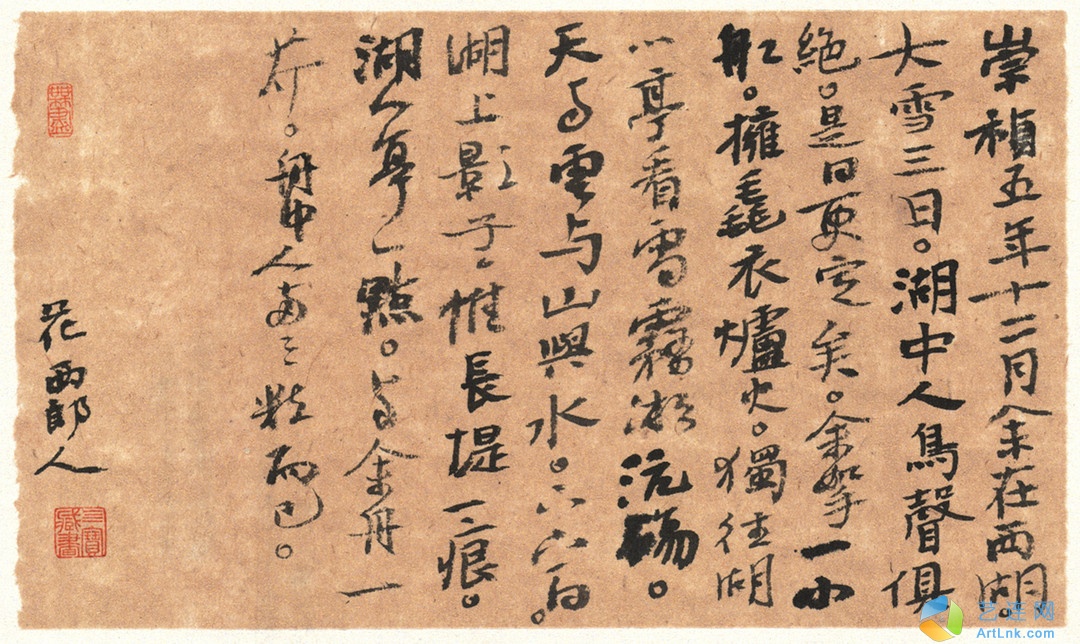 崇禎五年十二月余在西湖。
大雪三日。湖中人鳥聲俱
絕。是日更定矣。余拏一小
舡。擁毳衣爐火。獨往湖
心亭看雪霧凇沆碭。
天与雲与山與水。上下一白。
湖上影子惟長堤一痕。
湖心亭一點。与余舟一
芥。舟中人兩三粒而已。
花西郎人
三寶藏書
艺连网
ArtLnk.com